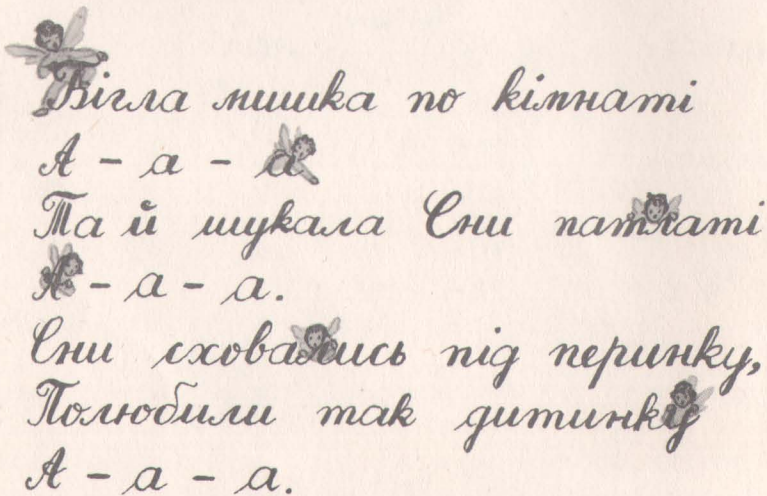 Бігла мишка по кімнаті
А – а – а
Та й шукала Сни патлаті
А – а – а.
Сни сховались під перинку,
Полюбили так дитинку
А – а – а.